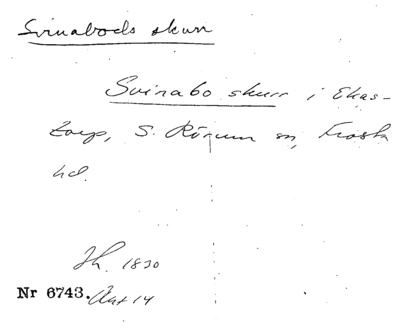 Svinabods skurr
Svinabo skurr i Ekas-
torp, S. Rörum sn, Frosta
hd.
Jh. 1830
Nr 6743. Akt 14